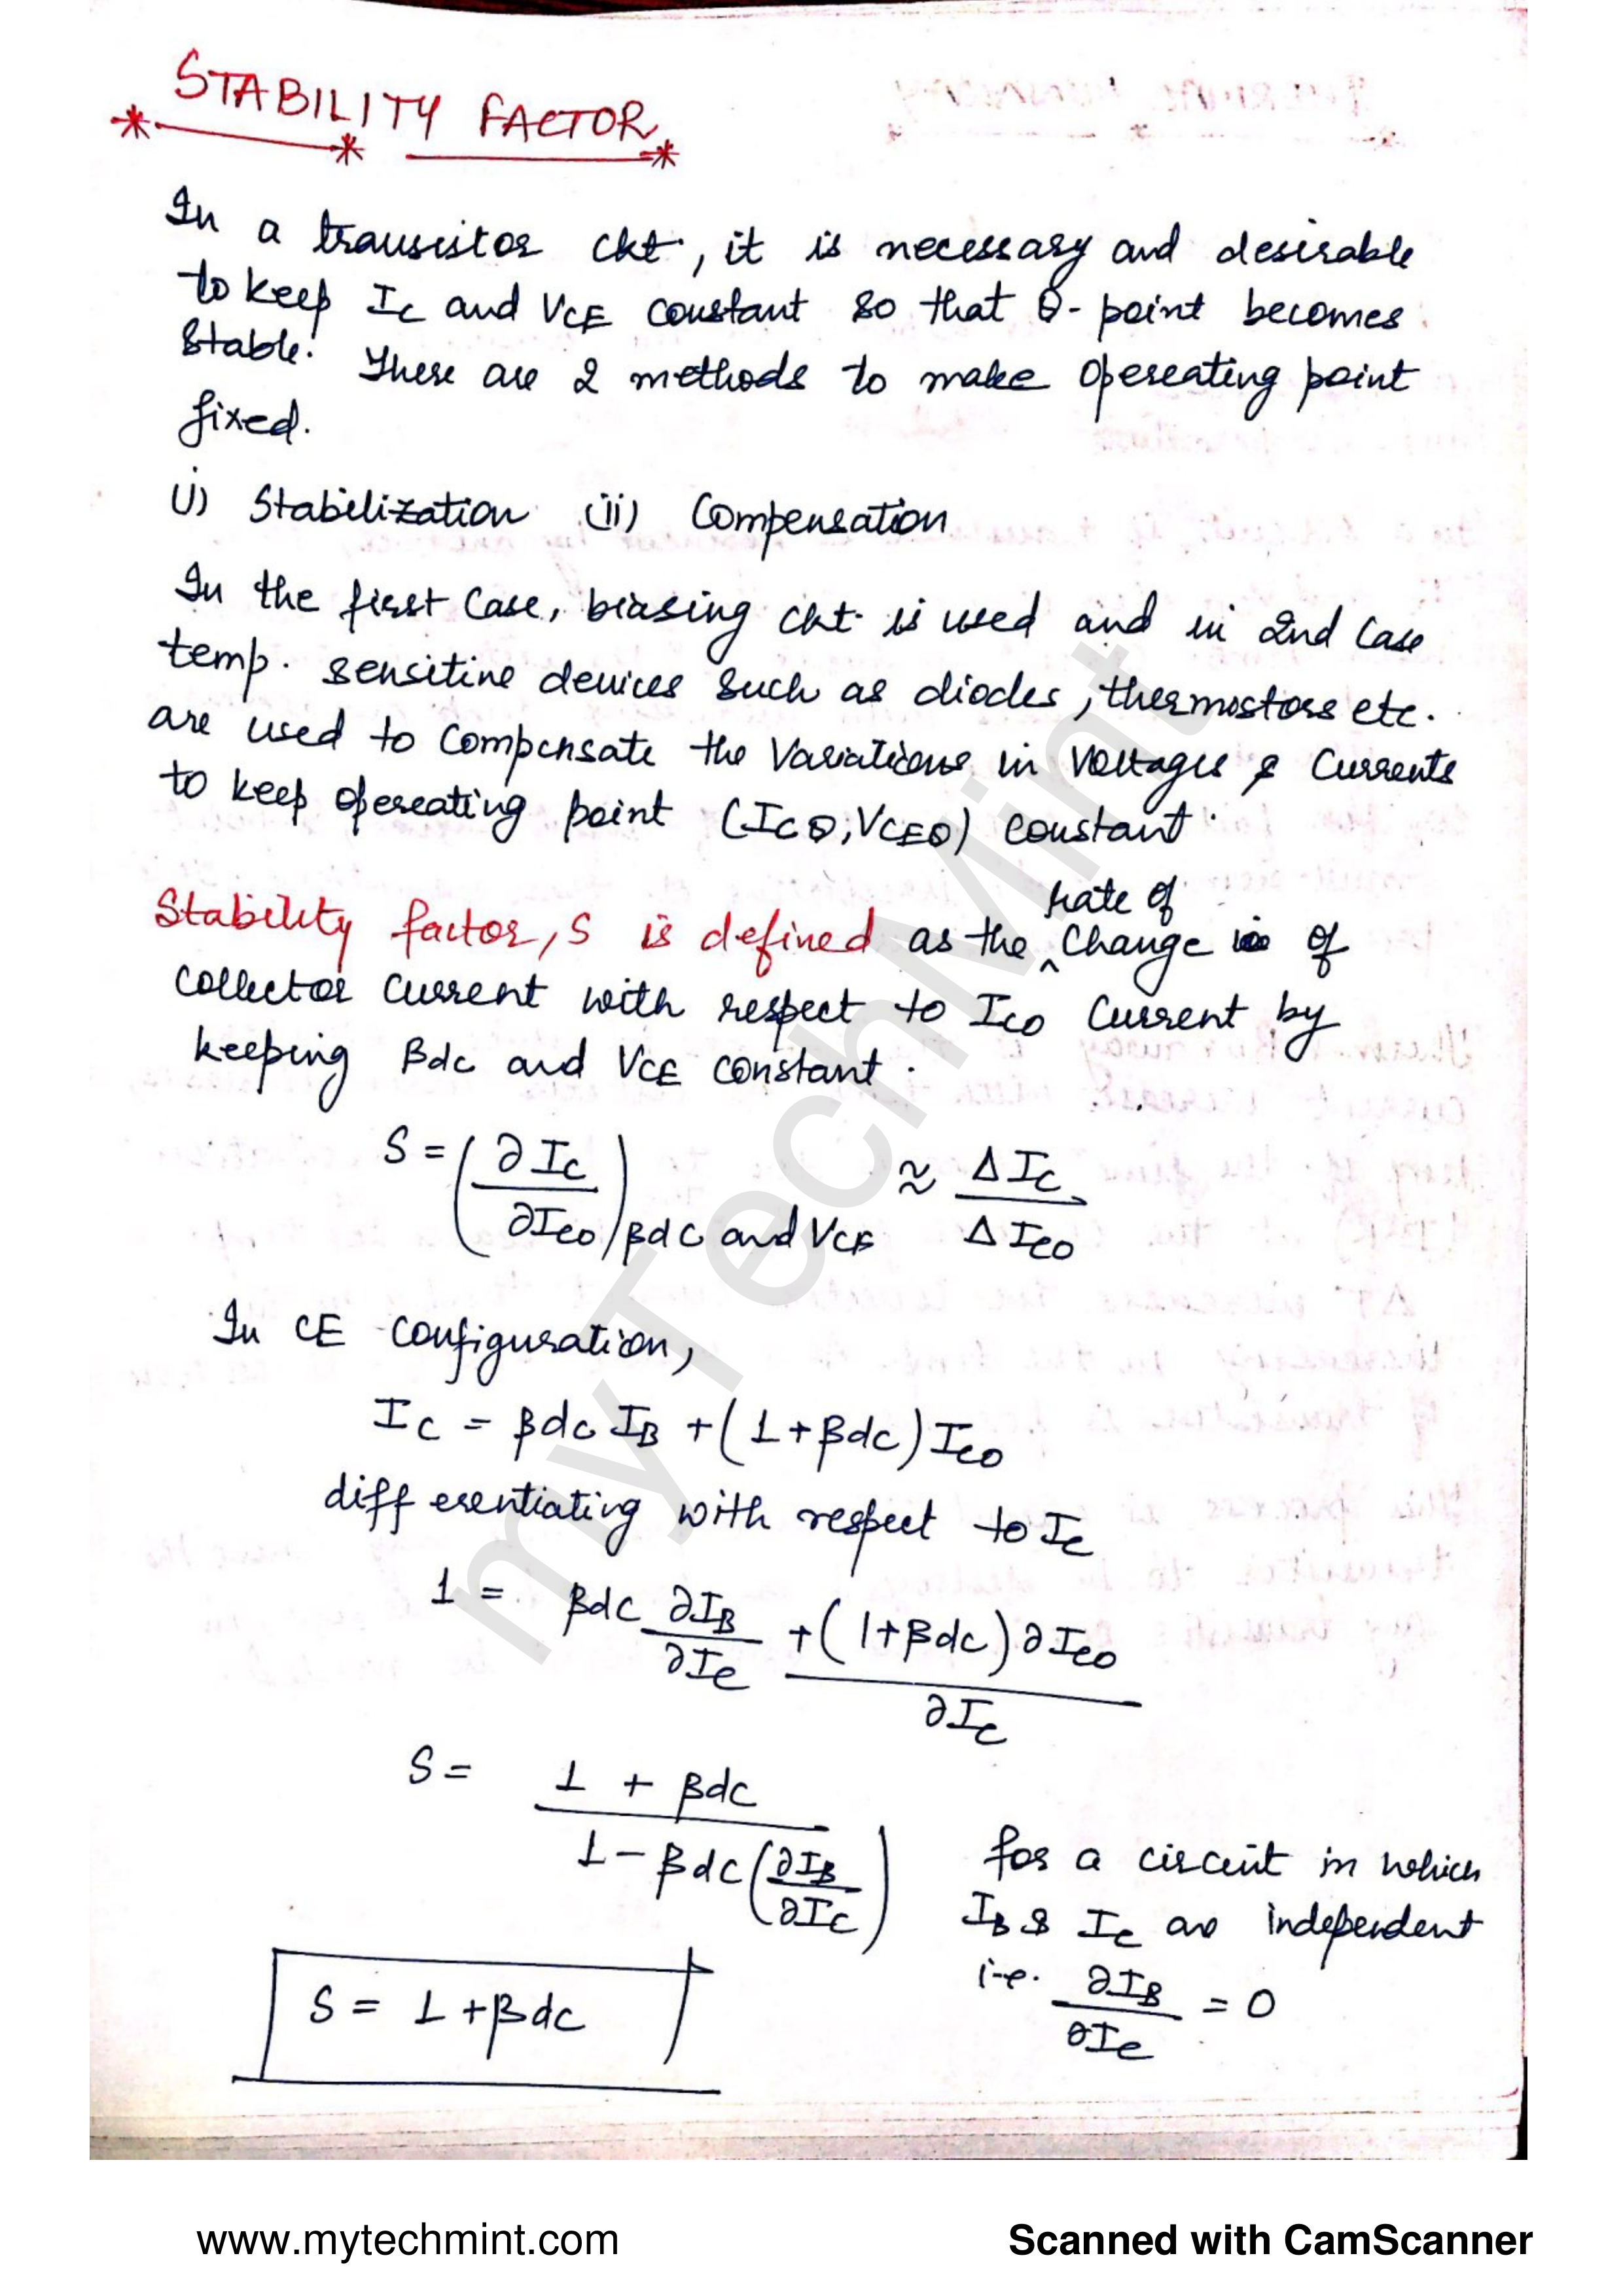 STABILITY FACTOR
In a transistor ckt., it is necessary and desirable
to keep IC and VCE constant so that Q-point becomes
stable. There are 2 methods to make opereating point
fixed.
(i) Stabilization (ii) Compensation
In the first case, biasing ckt. is used and in 2nd case
temp. sensitine devices such as diodes, thermostors etc.
are used to compensate the variations in voltages & currents
to keep opereating point (ICQ, VCEQ) constant.
rate of
Stability factor, S is defined as the ^ change of
collector current with respect to ICO current by
keeping βdc and VCE constant.
S = (∂IC / ∂ICO) βdc and VCE ≈ ΔIC / ΔICO
In CE configuration,
IC = βdc IB + (1+βdc) ICO
differentiating with respect to IC
1 = βdc ∂IB / ∂IC + (1+βdc) ∂ICO / ∂IC
S = 1 + βdc / 1 - βdc (∂IB / ∂IC)
for a circuit in which
IB & IC are independent
i.e. ∂IB / ∂IC = 0
S = 1 + βdc
myTechMint
www.mytechmint.com
Scanned with CamScanner